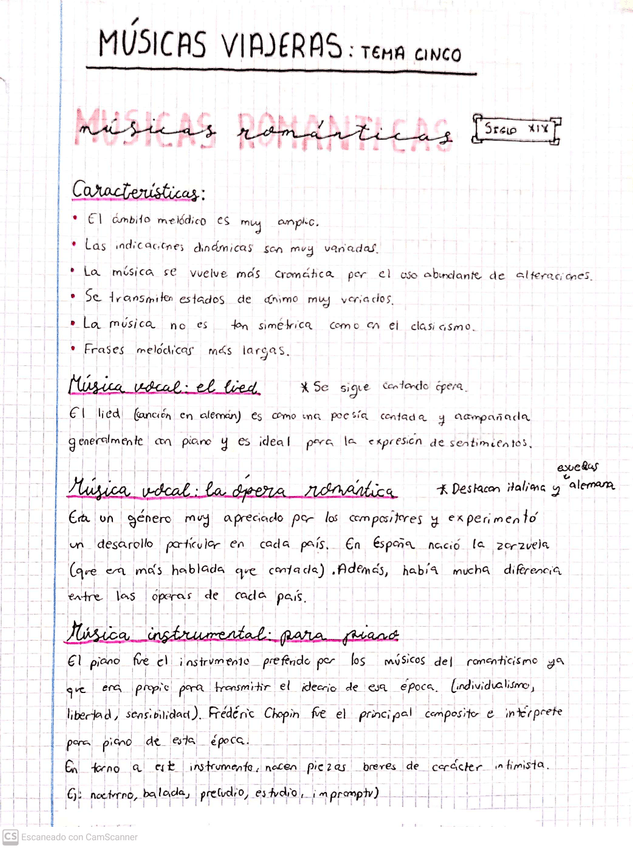 MÚSICAS VIAJERAS: TEMA CINCO
MÚSICAS ROMÁNTICAS
músicas románticas
SIGLO XIX
Características:
• El ámbito melódico es muy amplio.
• Las indicaciones dinámicas son muy variadas.
• La música se vuelve más cromática por el uso abundante de alteraciones.
• Se transmiten estados de ánimo muy variados.
• La música no es tan simétrica como en el clasicismo.
• Frases melódicas más largas.
Música vocal: el lied * Se sigue cantando ópera.
El lied (canción en alemán) es como una poesía cantada y acompañada
generalmente con piano y es ideal para la expresión de sentimientos.
Música vocal: la ópera romántica * Destacan italiana y alemana
escuelas
Era un género muy apreciado por los compositores y experimentó
un desarollo particular en cada país. En España nació la zarzuela
(que era más hablada que cantada). Además, había mucha diferencia
entre las óperas de cada país.
Música instrumental: para piano
El piano fue el instrumento preferido por los músicos del romanticismo ya
que era propio para transmitir el ideario de esa época. (individualismo,
libertad, sensibilidad). Frédéric Chopin fue el principal compositor e intérprete
para piano de esta época.
En torno a este instrumento, nacen piezas breves de carácter intimista.
Ej: nocturno, balada, preludio, estudio, impromptu)
CS Escaneado con CamScanner